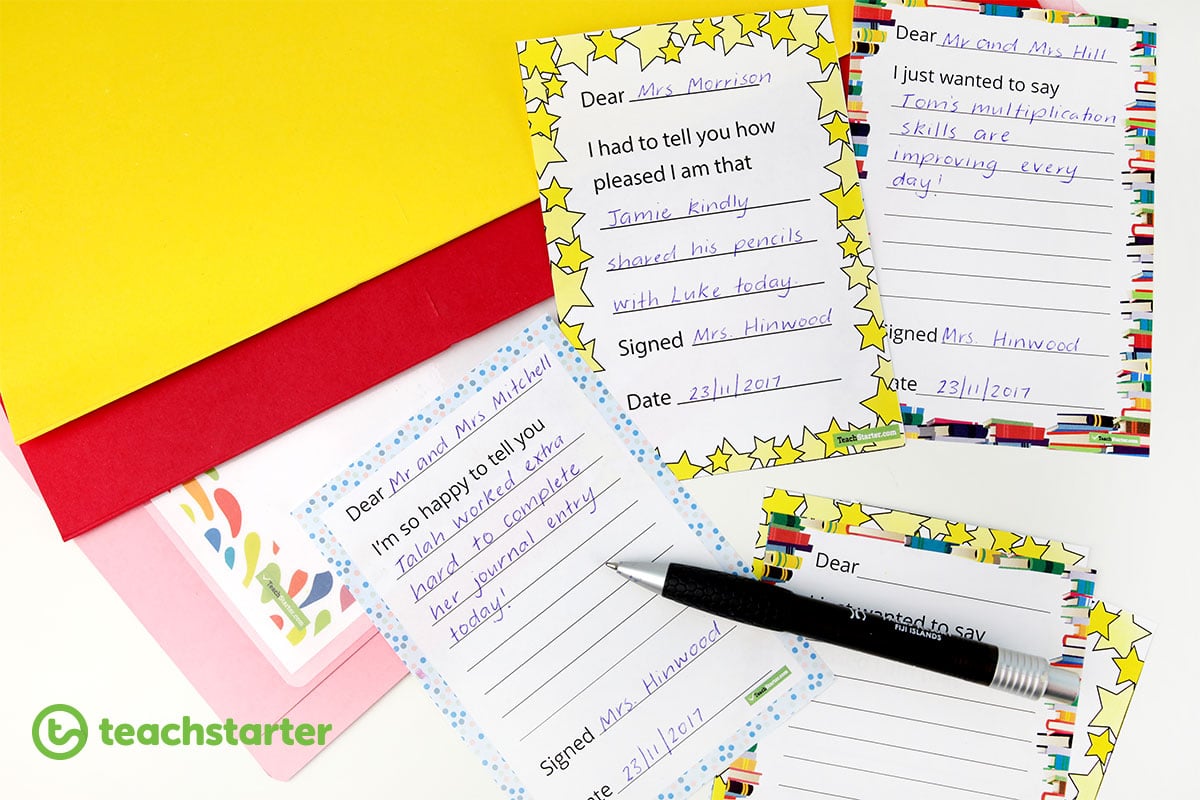 Dear Mrs Morrison
I had to tell you how
pleased I am that
Jamie kindly
shared his pencils
with Luke today.
Signed Mrs. Hinwood
Date 23/11/2017
TeachStarter.com
Dear Mr and Mrs Hill
I just wanted to say
Tom's multiplication
skills are
improving every
day!
Signed Mrs. Hinwood
Date 23/11/2017
TeachStarter.com
Dear Mr and Mrs Mitchell
I'm so happy to tell you
Talah worked extra
hard to complete
her journal entry
today!
Signed Mrs. Hinwood
Date 23/11/2017
TeachStarter.com
Dear
I just wanted to say
FIJI ISLANDS
TeachStarter.com
teachstarter